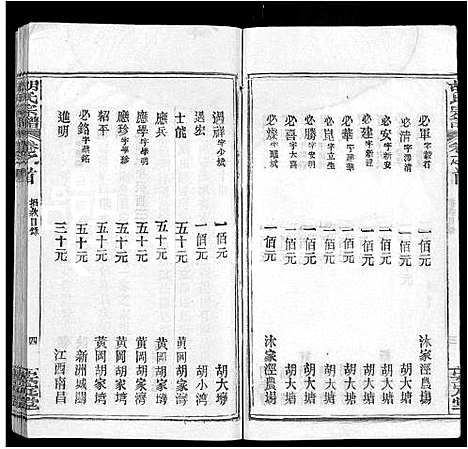 必軍 字毅君 一佰元 沐家涇農場
必清 字澤清 一佰元 胡大塘
必安 字新安 一佰元 胡大塘
必建 字新 一佰元 胡大塘
必華 字 一佰元 胡大塘
必宜 字立生 一佰元 胡大塘
必勝 字安明 一佰元 胡大塘
必喜 字大喜 一佰元 胡大塘
必 一佰元 沐家涇農場
胡氏宗譜 卷之首 捐款目錄 四
祥 字少斌 一佰元 胡大塘
遇宏 一佰元 胡小灣
士能 五十元 黃岡胡家灣
應兵 五十元 黃岡胡家灣
應學 字學明 五十元 黃岡胡家灣
應珍 字學珍 五十元 黃岡胡家灣
紹平 五十元 黃岡胡家塆
必銘 字華銘 五十元 新洲城關
進明 三十元 江西南昌